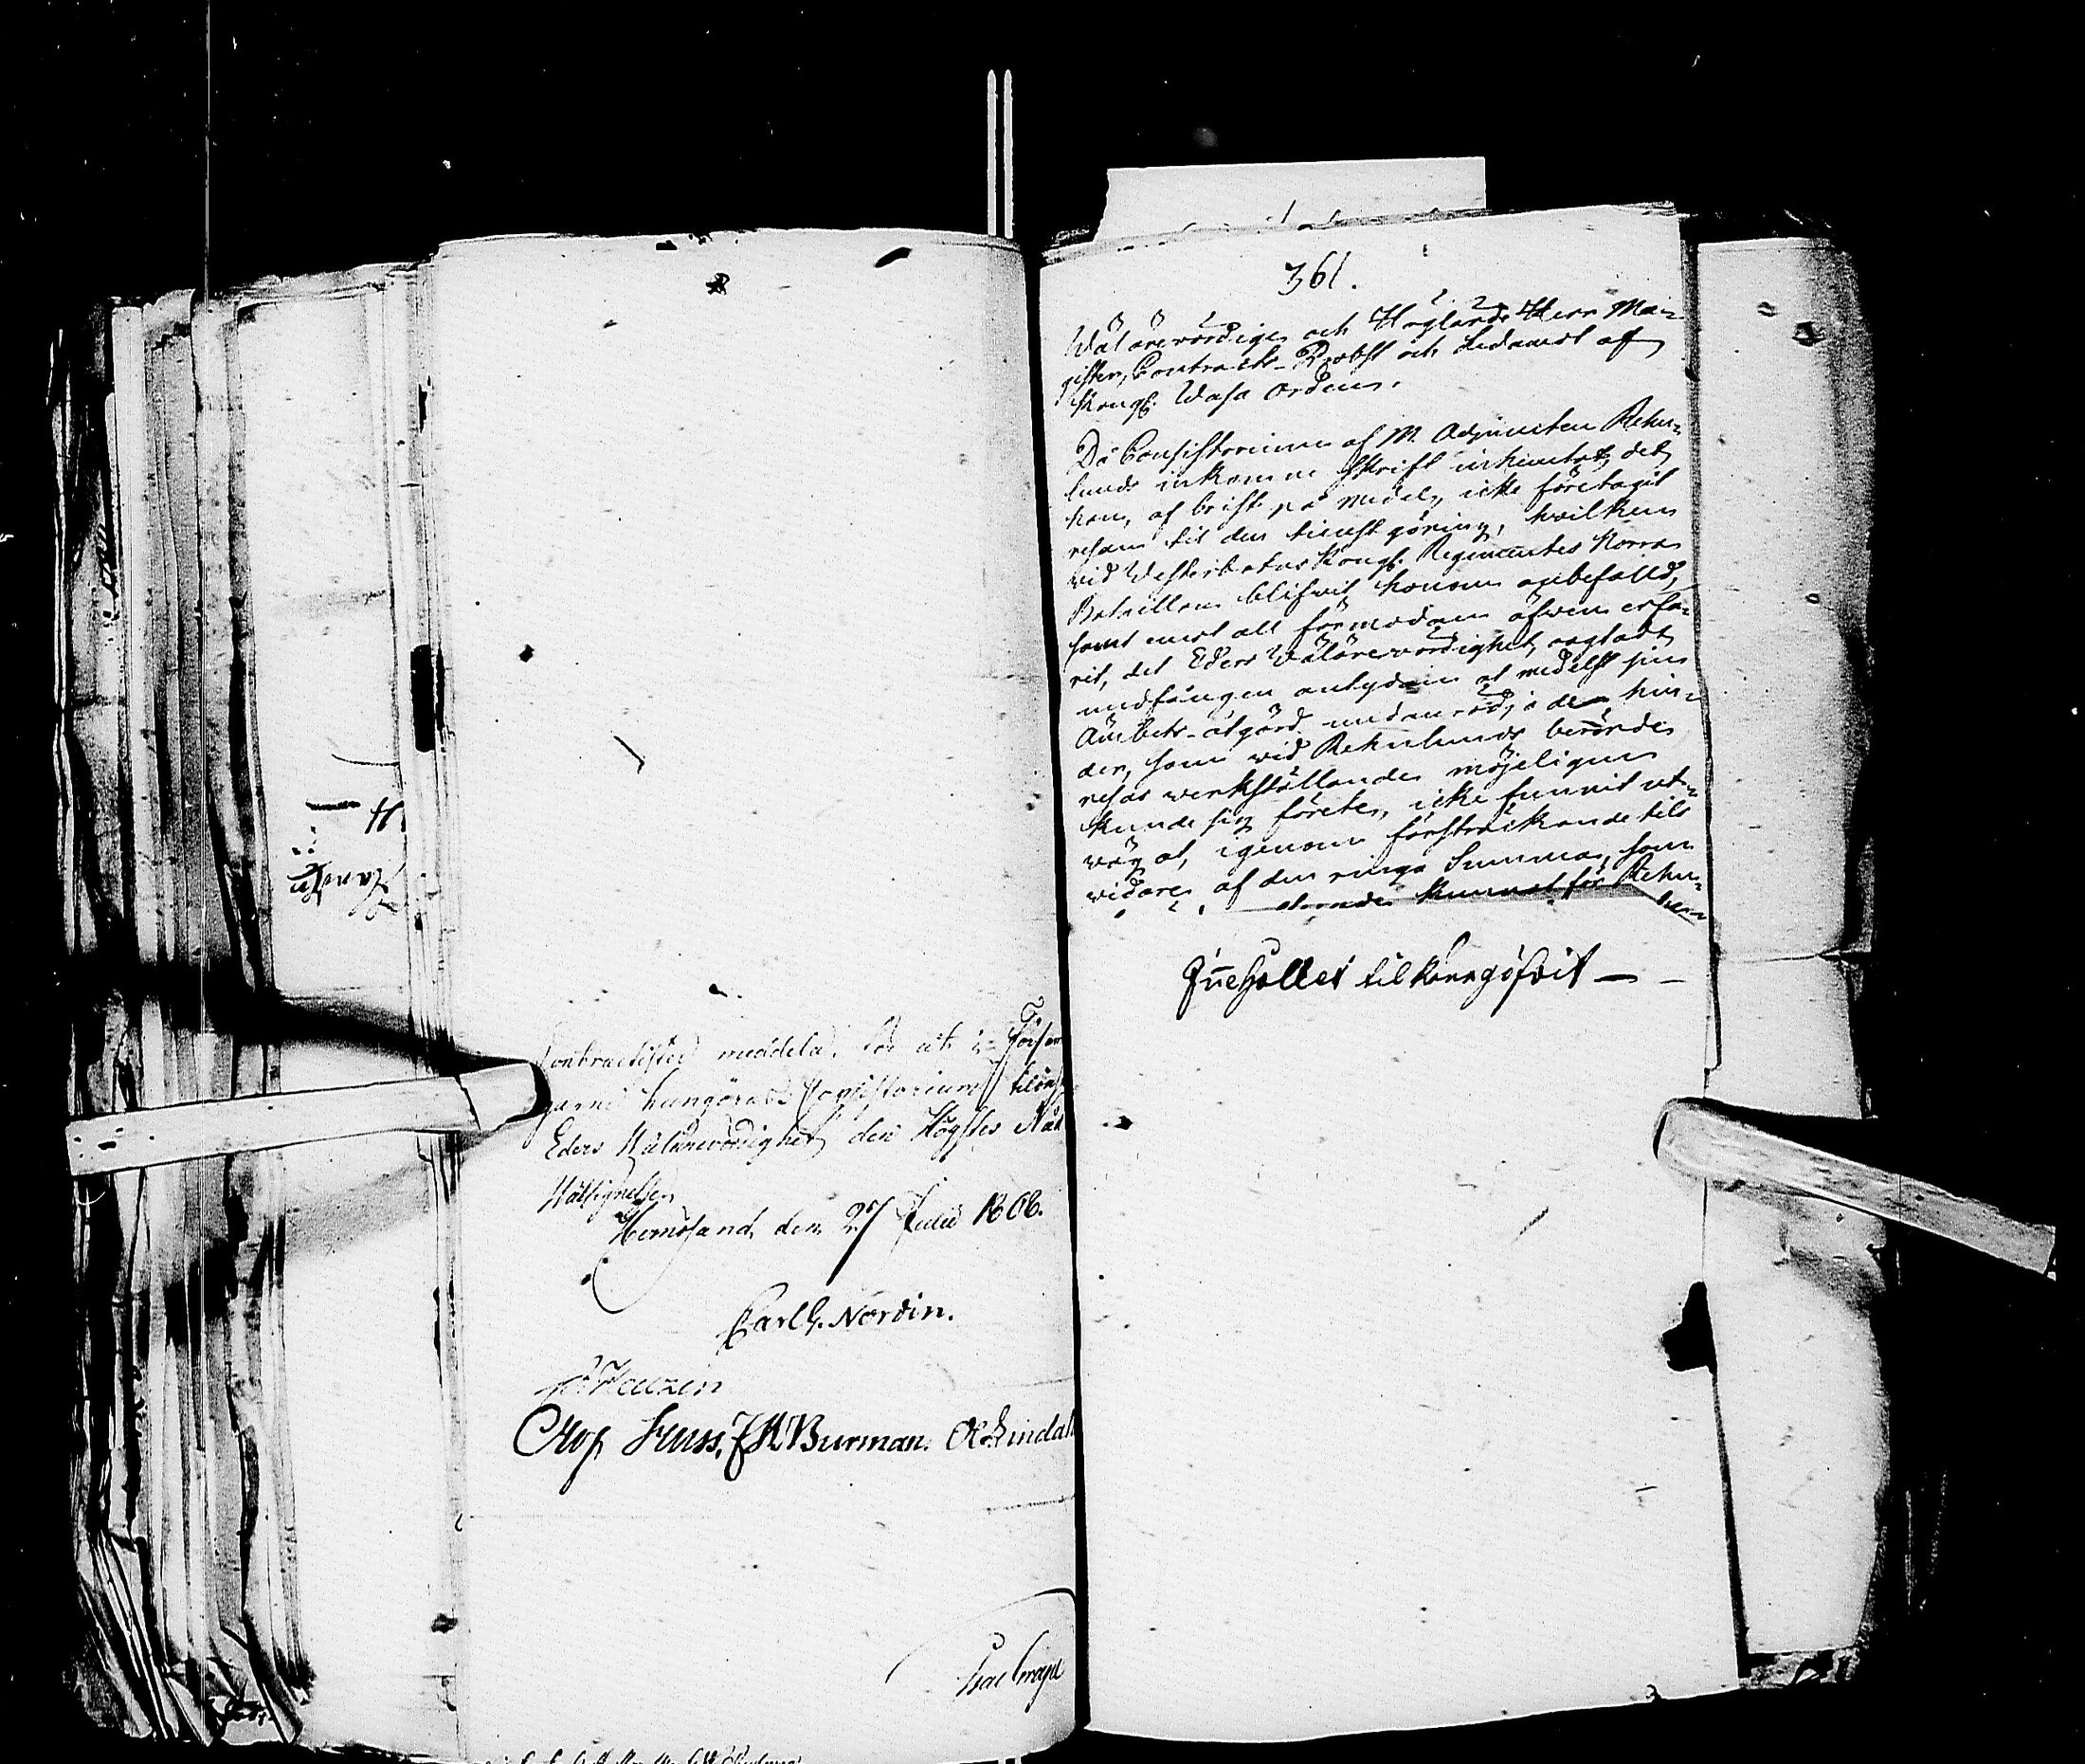 Contractisten meddela. för att i Försam
jarne kungöras. Consistorium tilönsk
Eders Wälärewördighet den Högstes Nåd
Wälsignelse
Hernösand, den 27 Julii 1806.
Carl G. Nordin.
Olof Huss. JA Burman. Ol Lindahl
361.
Wälärewördige och Höglärde Herr Ma-
gister, Contracts-Probst och Ledamot af
Kongl. Wasa Orden.
Då Consistorium af M. Adjuncten Rehn-
lunds inkomne skrift inhemtat, det
han, af brist på medel, icke företagit
resan til den tienstgöring, hvilken
vid Westerbotns Kongl. Regimentes Norra
Bataillon blifvit honom anbefalld,
samt emot all förmodan äfwen erfa-
rit, det Eders Wälärewördighet, oagtadt
undfången antydan at medelst sin
Ämbets-åtgärd undanrödja de hin-
der, som wid Rehnlunds berörde
resas werkställande möjeligen
kunde sig förete, icke funnit ut-
wäg at, igenom försträckande tils
widare af den ringa Summa, som
kunnat för Rehn-
Innehållet tilkännagifvit — -